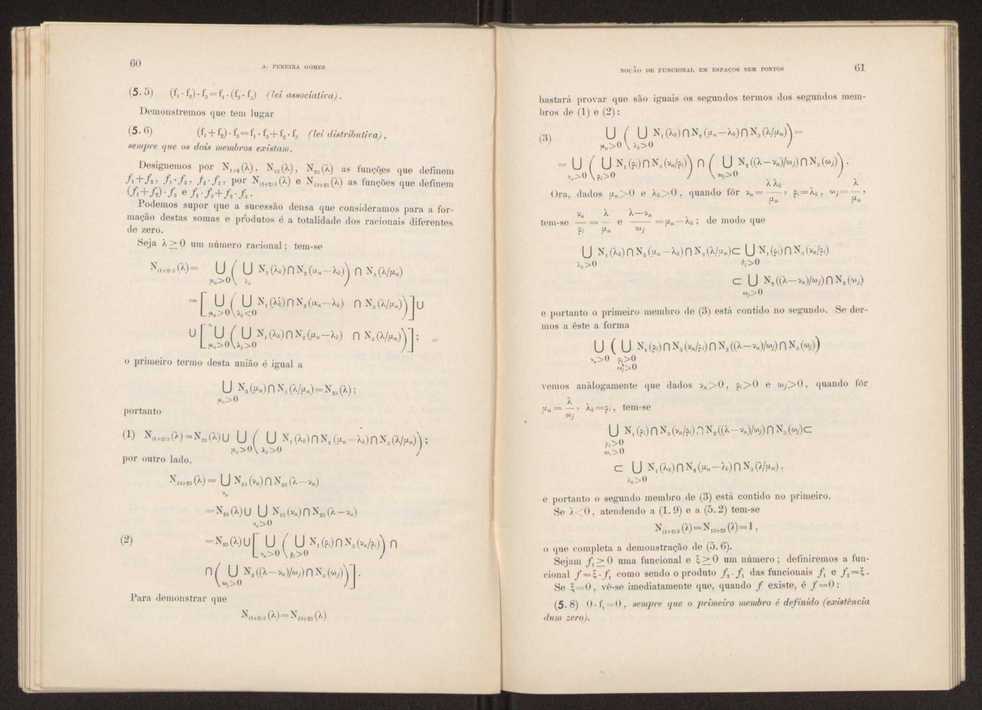 60
A. PEREIRA GOMES
(5.5) (f₁·f₂)·f₃=f₁·(f₂·f₃) (lei associativa).
Demonstremos que tem lugar
(5.6) (f₁+f₂)·f₃=f₁·f₃+f₂·f₃ (lei distributiva),
sempre que os dois membros existam.
Designemos por N₁₊₂(λ), N₁₃(λ), N₂₃(λ) as funções que definem
f₁+f₂, f₁·f₃, f₂·f₃, por N₍₁₊₂₎₃(λ) e N₁₃₊₂₃(λ) as funções que definem
(f₁+f₂)·f₃ e f₁·f₃+f₂·f₃.
Podemos supor que a sucessão densa que consideramos para a for-
mação destas somas e produtos é a totalidade dos racionais diferentes
de zero.
Seja λ≥0 um número racional; tem-se
N₍₁₊₂₎₃(λ)= ⋃ ( ⋃ N₁(λₖ)⋂N₂(μₙ−λₖ)) ⋂ N₃(λ/μₙ)
μₙ>0 λₖ
=[ ⋃ ( ⋃ N₁(λₖ)⋂N₂(μₙ−λₖ) ⋂ N₃(λ/μₙ))]∪
μₙ>0 λₖ<0
∪[ ⋃ ( ⋃ N₁(λₖ)⋂N₂(μₙ−λₖ) ⋂ N₃(λ/μₙ))];
μₙ>0 λₖ>0
o primeiro termo desta união é igual a
⋃ N₂(μₙ)⋂N₃(λ/μₙ)=N₂₃(λ);
μₙ>0
portanto
(1) N₍₁₊₂₎₃(λ)=N₂₃(λ)∪ ⋃ ( ⋃ N₁(λₖ)⋂N₂(μₙ−λₖ)⋂N₃(λ/μₙ));
μₙ>0 λₖ>0
por outro lado,
N₁₃₊₂₃(λ)= ⋃ N₁₃(νₙ)⋂N₂₃(λ−νₙ)
νₙ
=N₂₃(λ)∪ ⋃ N₁₃(νₙ)⋂N₂₃(λ−νₙ)
νₙ>0
(2) =N₂₃(λ)∪[ ⋃ ( ⋃ N₁(ρᵢ)⋂N₃(νₙ/ρᵢ)) ⋂
νₙ>0 ρᵢ>0
⋂( ⋃ N₂((λ−νₙ)/ωⱼ)⋂N₃(ωⱼ))].
ωⱼ>0
Para demonstrar que
N₍₁₊₂₎₃(λ)=N₁₃₊₂₃(λ)
NOÇÃO DE FUNCIONAL EM ESPAÇOS SEM PONTOS
61
bastará provar que são iguais os segundos termos dos segundos mem-
bros de (1) e (2):
(3) ⋃ ( ⋃ N₁(λₖ)⋂N₂(μₙ−λₖ)⋂N₃(λ/μₙ))=
μₙ>0 λₖ>0
= ⋃ ( ⋃ N₁(ρᵢ)⋂N₃(νₙ/ρᵢ)) ⋂ ( ⋃ N₂((λ−νₙ)/ωⱼ)⋂N₃(ωⱼ)).
νₙ>0 ρᵢ>0 ωⱼ>0
Ora, dados μₙ>0 e λₖ>0, quando fôr νₙ=λλₖ/μₙ, ρᵢ=λₖ, ωⱼ=λ/μₙ,
tem-se νₙ/ρᵢ=λ/μₙ e (λ−νₙ)/ωⱼ=μₙ−λₖ; de modo que
⋃ N₁(λₖ)⋂N₂(μₙ−λₖ)⋂N₃(λ/μₙ)⊂ ⋃ N₁(ρᵢ)⋂N₃(νₙ/ρᵢ)
λₖ>0 ρᵢ>0
⊂ ⋃ N₂((λ−νₙ)/ωⱼ)⋂N₃(ωⱼ)
ωⱼ>0
e portanto o primeiro membro de (3) está contido no segundo. Se der-
mos a êste a forma
⋃ ( ⋃ N₁(ρᵢ)⋂N₃(νₙ/ρᵢ)⋂N₂((λ−νₙ)/ωⱼ)⋂N₃(ωⱼ))
νₙ>0 ρᵢ>0
ωⱼ>0
vemos anàlogamente que dados νₙ>0, ρᵢ>0 e ωⱼ>0, quando fôr
μₙ=λ/ωⱼ, λₖ=ρᵢ, tem-se
⋃ N₁(ρᵢ)⋂N₃(νₙ/ρᵢ)⋂N₂((λ−νₙ)/ωⱼ)⋂N₃(ωⱼ)⊂
ρᵢ>0
ωⱼ>0
⊂ ⋃ N₁(λₖ)⋂N₂(μₙ−λₖ)⋂N₃(λ/μₙ),
λₖ>0
e portanto o segundo membro de (3) está contido no primeiro.
Se λ<0, atendendo a (1.9) e a (5.2) tem-se
N₍₁₊₂₎₃(λ)=N₁₃₊₂₃(λ)=1,
o que completa a demonstração de (5.6).
Sejam f₁≥0 uma funcional e ξ≥0 um número; definiremos a fun-
cional f=ξ·f₁ como sendo o produto f₂·f₁ das funcionais f₁ e f₂=ξ.
Se ξ=0, vê-se imediatamente que, quando f existe, é f=0:
(5.8) 0·f₁=0, sempre que o primeiro membro é definido (existência
dum zero).